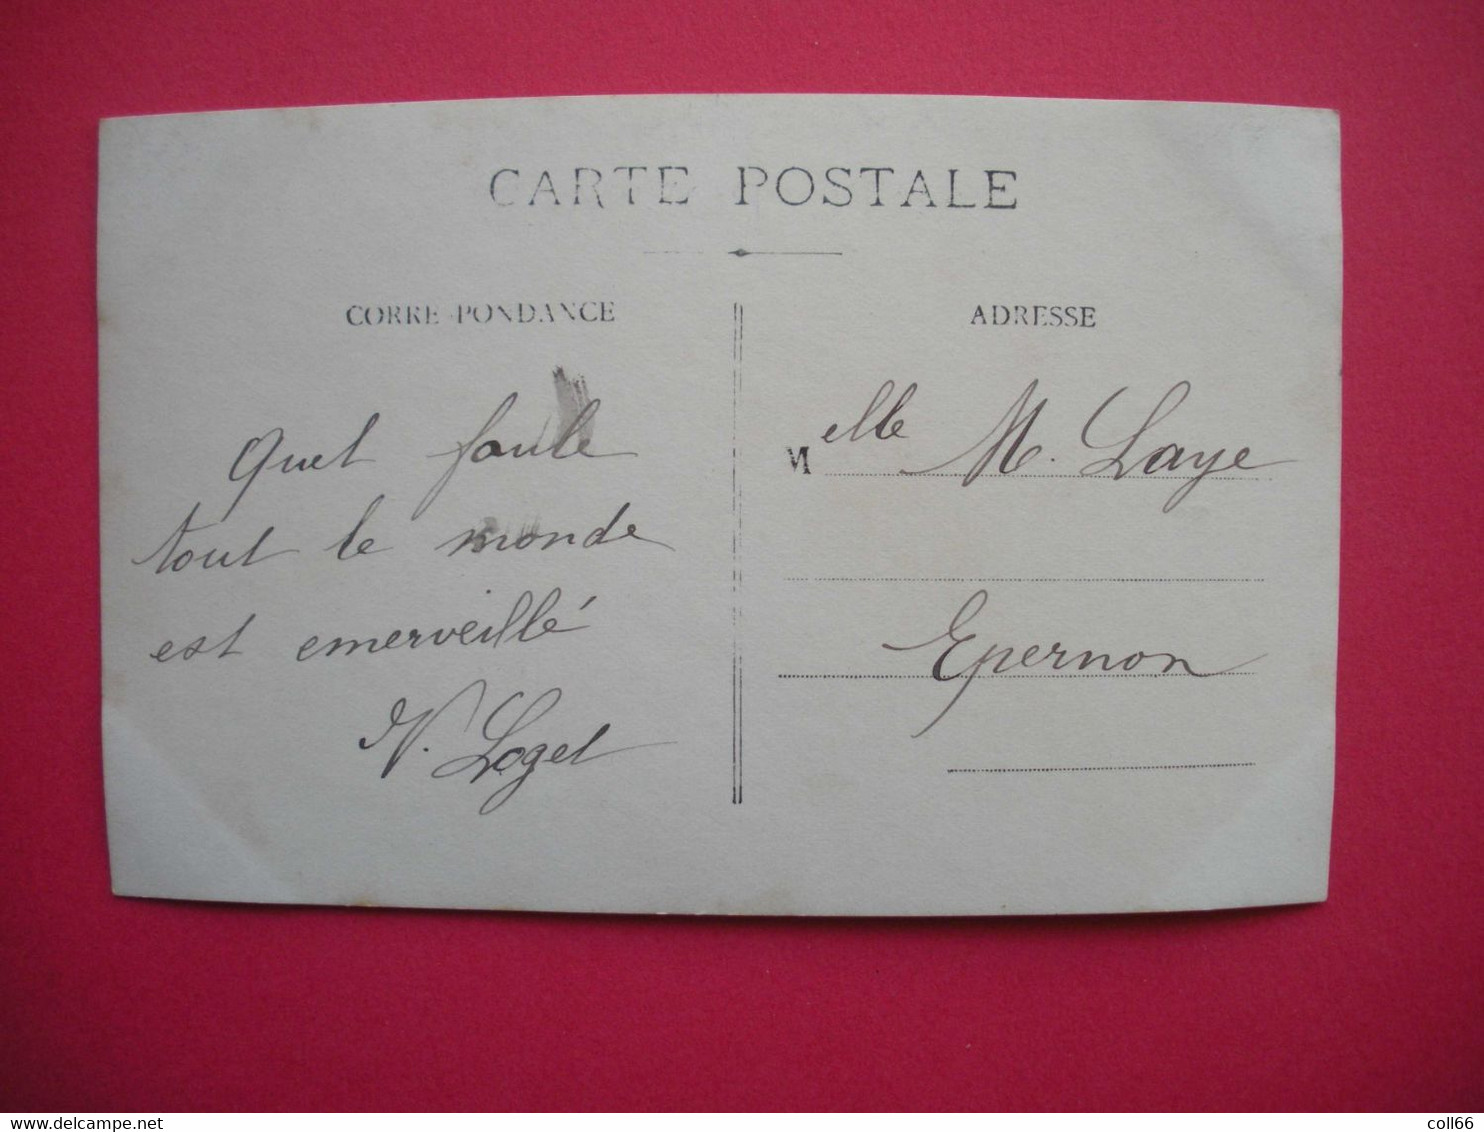 CARTE POSTALE
CORRE PONDANCE
ADRESSE
Quel foule
tout le monde
est emerveillé
V. Loget
Melle M. Laye
Epernon
www.delcampe.net
coll66